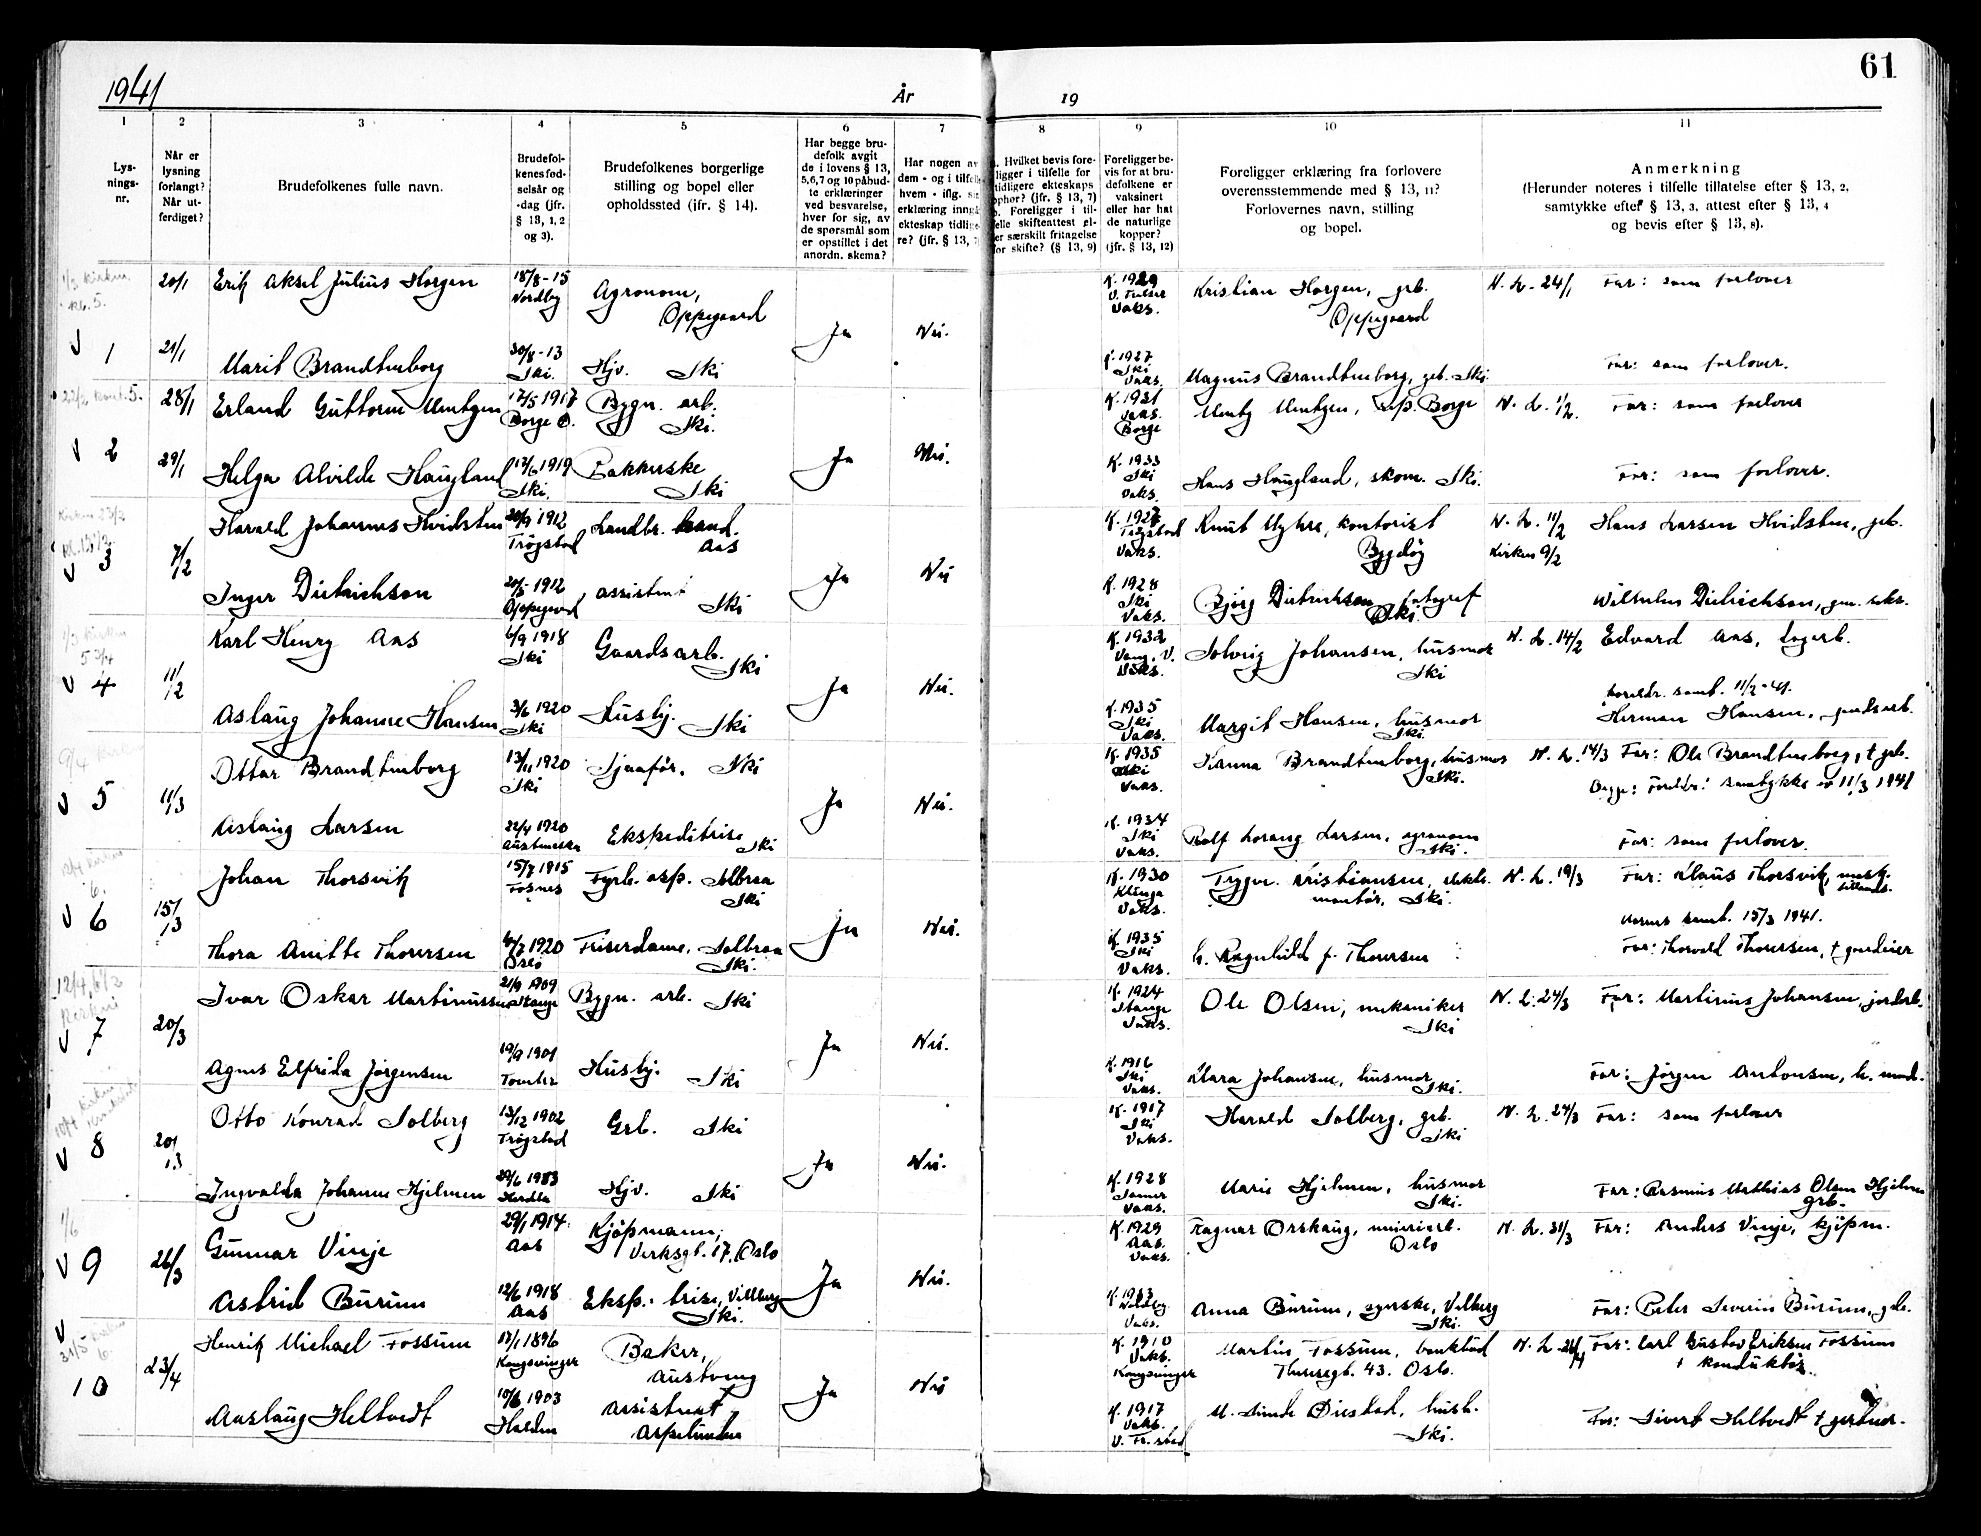 61
1941
År
19
1 2 3 4 5 6 7 8 9 10 11
Lys-
nings-
nr.
Når er
lysning
forlangt?
Når ut-
ferdiget?
Brudefolkenes fulle navn.
Brudefol-
kenes fød-
selsår og
-dag (jfr.
§ 13, 1, 2
og 3).
Brudefolkenes borgerlige
stilling og bopel eller
opholdssted (jfr. § 14).
Har begge bru-
defolk avgit
de i lovens § 13,
5,6,7 og 10 påbud-
te erklæringer
ved besvarelse,
hver for sig, av
de spørsmål som
er opstillet i det
anordn. skema?
Har nogen av
dem - og i tilfelle
hvem - iflg.
erklæring inngå
ekteskap tidlige-
re? (jfr. § 13,
Hvilket bevis fore-
ligger i tilfelle for
tidligere ekteskaps
ophør? (jfr. § 13, 7)
Foreligger i til-
felle skifteattest el-
er særskilt fritagelse
for skifte? (§ 13, 9)
Foreligger be-
vis for at bru-
defolkene er
vaksinert
eller har hat
de naturlige
kopper?
(jfr. § 13, 12)
Foreligger erklæring fra forlovere
overensstemmende med § 13, 11?
Forlovernes navn, stilling
og bopel.
Anmerkning
(Herunder noteres i tilfelle tillatelse efter § 13, 2,
samtykke efter § 13, 3, attest efter § 13, 4
og bevis efter § 13, 8).
20/1 Erik Aksel Julius Horgen 18/8-15 Nordby Agronom, Oppegaard K. 1929 Vaks. Kristian Horgen, grb. Oppegaard N. L. 24/1 Far: som forlover
1 21/1 Marit Brandtenborg 30/8-13 Ski. Hjv. Ski Ja Nei. K. 1927 Ski Vaks. Magnus Brandtenborg, grb. Ski. Far: som forlover.
28/1 Erland Guttorm Mentzen 17/5 1917 Borge Ø. Bygn. arb. Ski. K. 1931 Vaks. Borge Mentz Mentzen, Borge N. L. 1/2. Far: som forlover
2 29/1 Helga Alvilde Haugland 17/6 1919 Ski. Bakkerske Ski Ja Nei. K. 1933 Ski Vaks. Hans Haugland, skom. Ski. Far: som forlover.
Harald Johannes Hvidsten 20/9 1912 Trøgstad Landbr. kand. Aas K. 1927 Trøgstad Vaks. Knut Myhre, kontorist Bygdøy N. L. 11/2 Kirken 9/2 Hans Larsen Hvidsten, grb.
3 7/2 Inger Dietrichson 1912 Oppegaard assistent Ski Ja Nei K. 1928 Ski Vaks. Bjørg Dietrichson, fotograf Ski. Wilhelm Dietrichson,
Karl Henry Aas 6/9 1918 Ski Gaardsarb. Ski K. 1932 Vang. V. Vaks. Solveig Johansen, husmor Ski N. L. 14/2 Edvard Aas, fagarb.
4 11/2 Aslaug Johanne Hansen 3/6 1920 Ski Husbj. Ski Ja Nei. K. 1935 Ski Vaks. Margit Hansen, husmor Ski. Foreldr. samt. 11/2-41. Herman Hansen, gaardsarb.
Ottar Brandtenborg 13/11 1920 Ski Sjaafør. Ski K. 1935 Ski Vaks. Hanna Brandtenborg, husmor Ski. N. L. 14/3 Far: Ole Brandtenborg, † grb.
Begge: Foreldr. samtykke av 11/3 1941
5 11/3 Aslaug Larsen 22/4 1920 Ekspeditrise Ski Ja Nei. K. 1934 Ski Vaks. Rolf Lorang Larsen, agronom Ski. Far: som forlover.
Johan Thorsvik 15/7 1915 Fosnes Fyrb. asp. Solbraa Ski K. 1930 Klinga Vaks. Trygve Kristiansen, elektr. montør, Ski. N. L. 19/3 Far: Klaus Thorsvik,
6 15/3 Thora Anette Thoresen 6/7 1920 Oslo Friserdame, Solbraa Ski. Ja Nei. K. 1935 Ski Vaks. Ragnhild f. Thoresen Mors samt. 15/3 1941. Far: Thorvald Thoresen, † gardeier
Ivar Oskar Martinussen 21/9 1909 Stange Bygn. arb. Ski K. 1924 Stange Vaks. Ole Olsen, mekaniker Ski N. L. 24/3 Far: Martinius Johansen, jordarb.
7 20/3 Agnes Elfrida Jørgensen 19/9 1901 Tomter Husbj. Ski Ja Nei. K. 1916 Ski Vaks. Klara Johansen, husmor, Ski. Far: Jørgen Antonsen,
Otto Konrad Solberg 13/12 1902 Trøgstad Grb. Ski K. 1917 Ski Vaks. Harald Solberg, grb. Ski N. L. 24/3 Far: som forlover
8 20/3 Ingvalda Johanne Hjelmen Herdla Hjv. Ski Ja Nei. K. 1928 Vaks. Marie Hjelmen, husmor Ski. Far: Rasmus Mathias Olsen Hjelmen grb.
Gunnar Vinje 29/1 1914 Aas Kjøpmann, Verksgt. 17, Oslo K. 1929 Aas. Vaks. Ragnar Orskaug, meieriarb. Oslo N. L. 31/3 Far: Anders Vinje, kjøpm.
9 26/3 Astrid Burum 12/6 1918 Aas Eksp.-trise, Vilberg Ski. Ja Nei. Vaks. Anna Burum, Vilberg Ski. Far: Peter Severin Burum, grb.
Henrik Michael Fossum 17/1 1896 Kongsvinger Baker, Austveng K. 1910 Vaks. Kongsvinger Martin Fossum, Theresegt. 43. Oslo. N. L. 26/4 Far: Carl Gustav Eriksen Fossum † konduktør.
10 23/4 Aaslaug Heltvedt 10/6 1903 Halden Assistent Aspelunden Ja Nei K. 1917 Vaks. Ski. Far: Sivert Heltvedt † gartner.